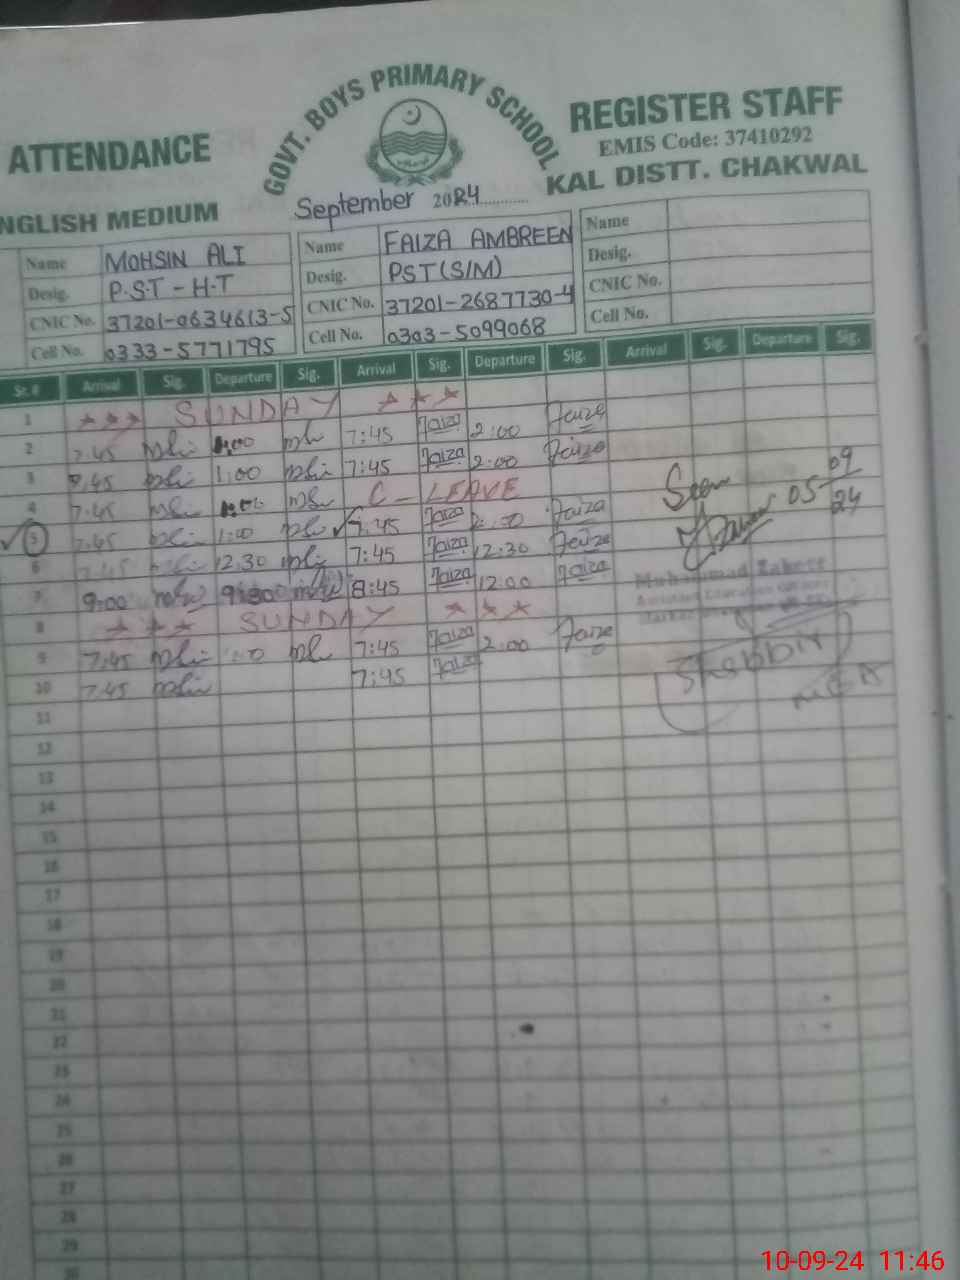 GOVT. BOYS PRIMARY SCHOOL
ATTENDANCE REGISTER STAFF
EMIS Code: 37410292
NGLISH MEDIUM KAL DISTT. CHAKWAL
September 2024
Name MOHSIN ALI Name FAIZA AMBREEN Name
Desig. P.S.T - H.T Desig. PST(S/M) Desig.
CNIC No. 37201-0634613-5 CNIC No. 37201-2687730-4 CNIC No.
Cell No. 0333-5771795 Cell No. 0303-5099068 Cell No.
Sr. # Arrival Sig. Departure Sig. Arrival Sig. Departure Sig. Arrival Sig. Departure Sig.
1 SUNDAY
2 7:45 1:00 7:45 Faiza 2:00 Faiza
3 7:45 1:00 7:45 Faiza 2:00 Faiza
4 7:45 C - LEAVE
5 7:45 1:00 7:45 Faiza 2:00 Faiza
6 7:45 12:30 7:45 Faiza 12:30 Faiza
7 9:00 8:45 Faiza 12:00 Faiza
8 SUNDAY
9 7:45 7:45 Faiza 2:00 Faiza
10 7:45 7:45 Faiza
Seen
05-09
24
Muhammad
Shabbir
11
12
13
14
15
16
17
18
19
20
21
22
23
24
25
26
27
28
29
10-09-24 11:46